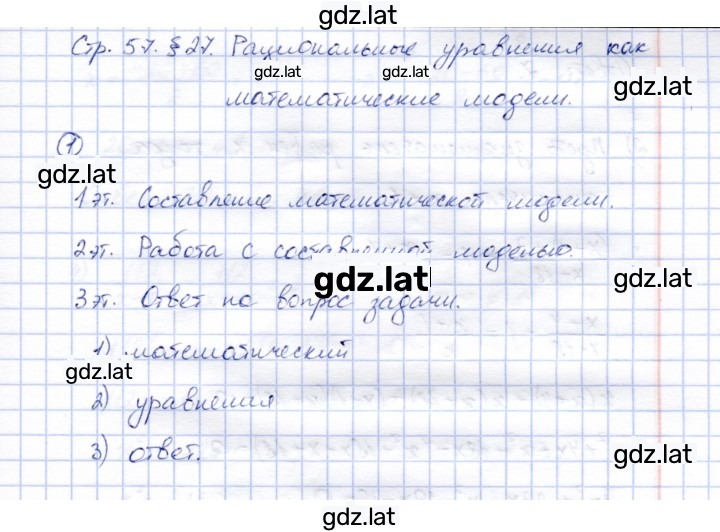 gdz.lat
Стр. 57. § 27. Рациональные уравнения как
gdz.lat gdz.lat gdz.lat
математические модели.
1
gdz.lat
1 эт. Составление математической модели.
2 эт. Работа с составленной моделью.
gdz.lat gdz.lat
3 эт. Ответ на вопрос задачи.
1) математический
gdz.lat
2) уравнения
3) ответ.
gdz.lat gdz.lat
gdz.lat